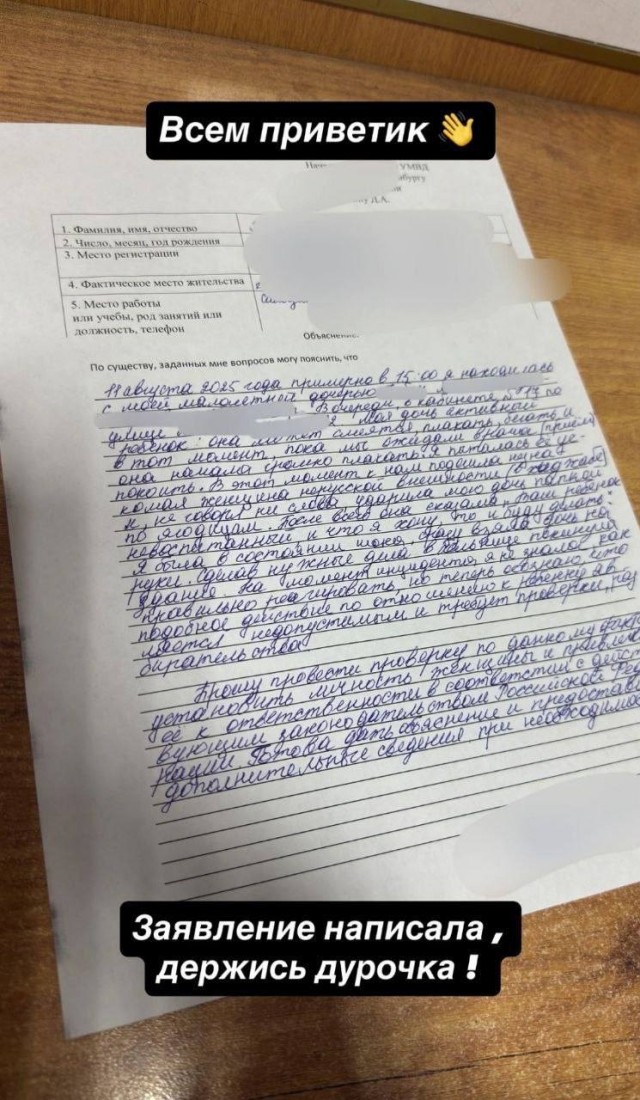 Всем приветик 👋
УМВД
Д.А.
1. Фамилия, имя, отчество
2. Число, месяц, год рождения
3. Место регистрации
4. Фактическое место жительства
5. Место работы
или учебы, род занятий или
должность, телефон
По существу, заданных мне вопросов могу пояснить, что
11 августа 2025 года примерно в 15:00 я находилась
с моей малолетней дочерью
В очереди, о кабинете, № 17 по
улице Моя дочь активный
ребенок: она может смеятся, плакать, бегать и
в тот момент, пока мы ожидали врача (прием)
она начала громко плакать. Я пыталась ее ус-
покоить. В этот момент к нам подошла незна-
комая женщина нерусской внешности
и, не говоря ни слова, ударила мою дочь
по ягодицам. После всего она сказала: там ребенок
невоспитанный и что я хочу, то и буду делать!
Я была в состоянии шока. взяла дочь на
руки. Сделав нужные дела в больнице покинула
здание. На момент инцидента я не знала, как
правильно реагировать, но теперь осознаю, что
подобное действие по отношению к ребенку яв
ляется недопустимым и требует проверки, раз
бирательства
Прошу провести проверку по данному факту
установить личность женщины и привлечь
её к ответственности в соответствии с дейст
вующим законодательством Российской Феде
рации. Готова дать объяснение и предостав
дополнительные сведения при необходимос
Заявление написала ,
держись дурочка !